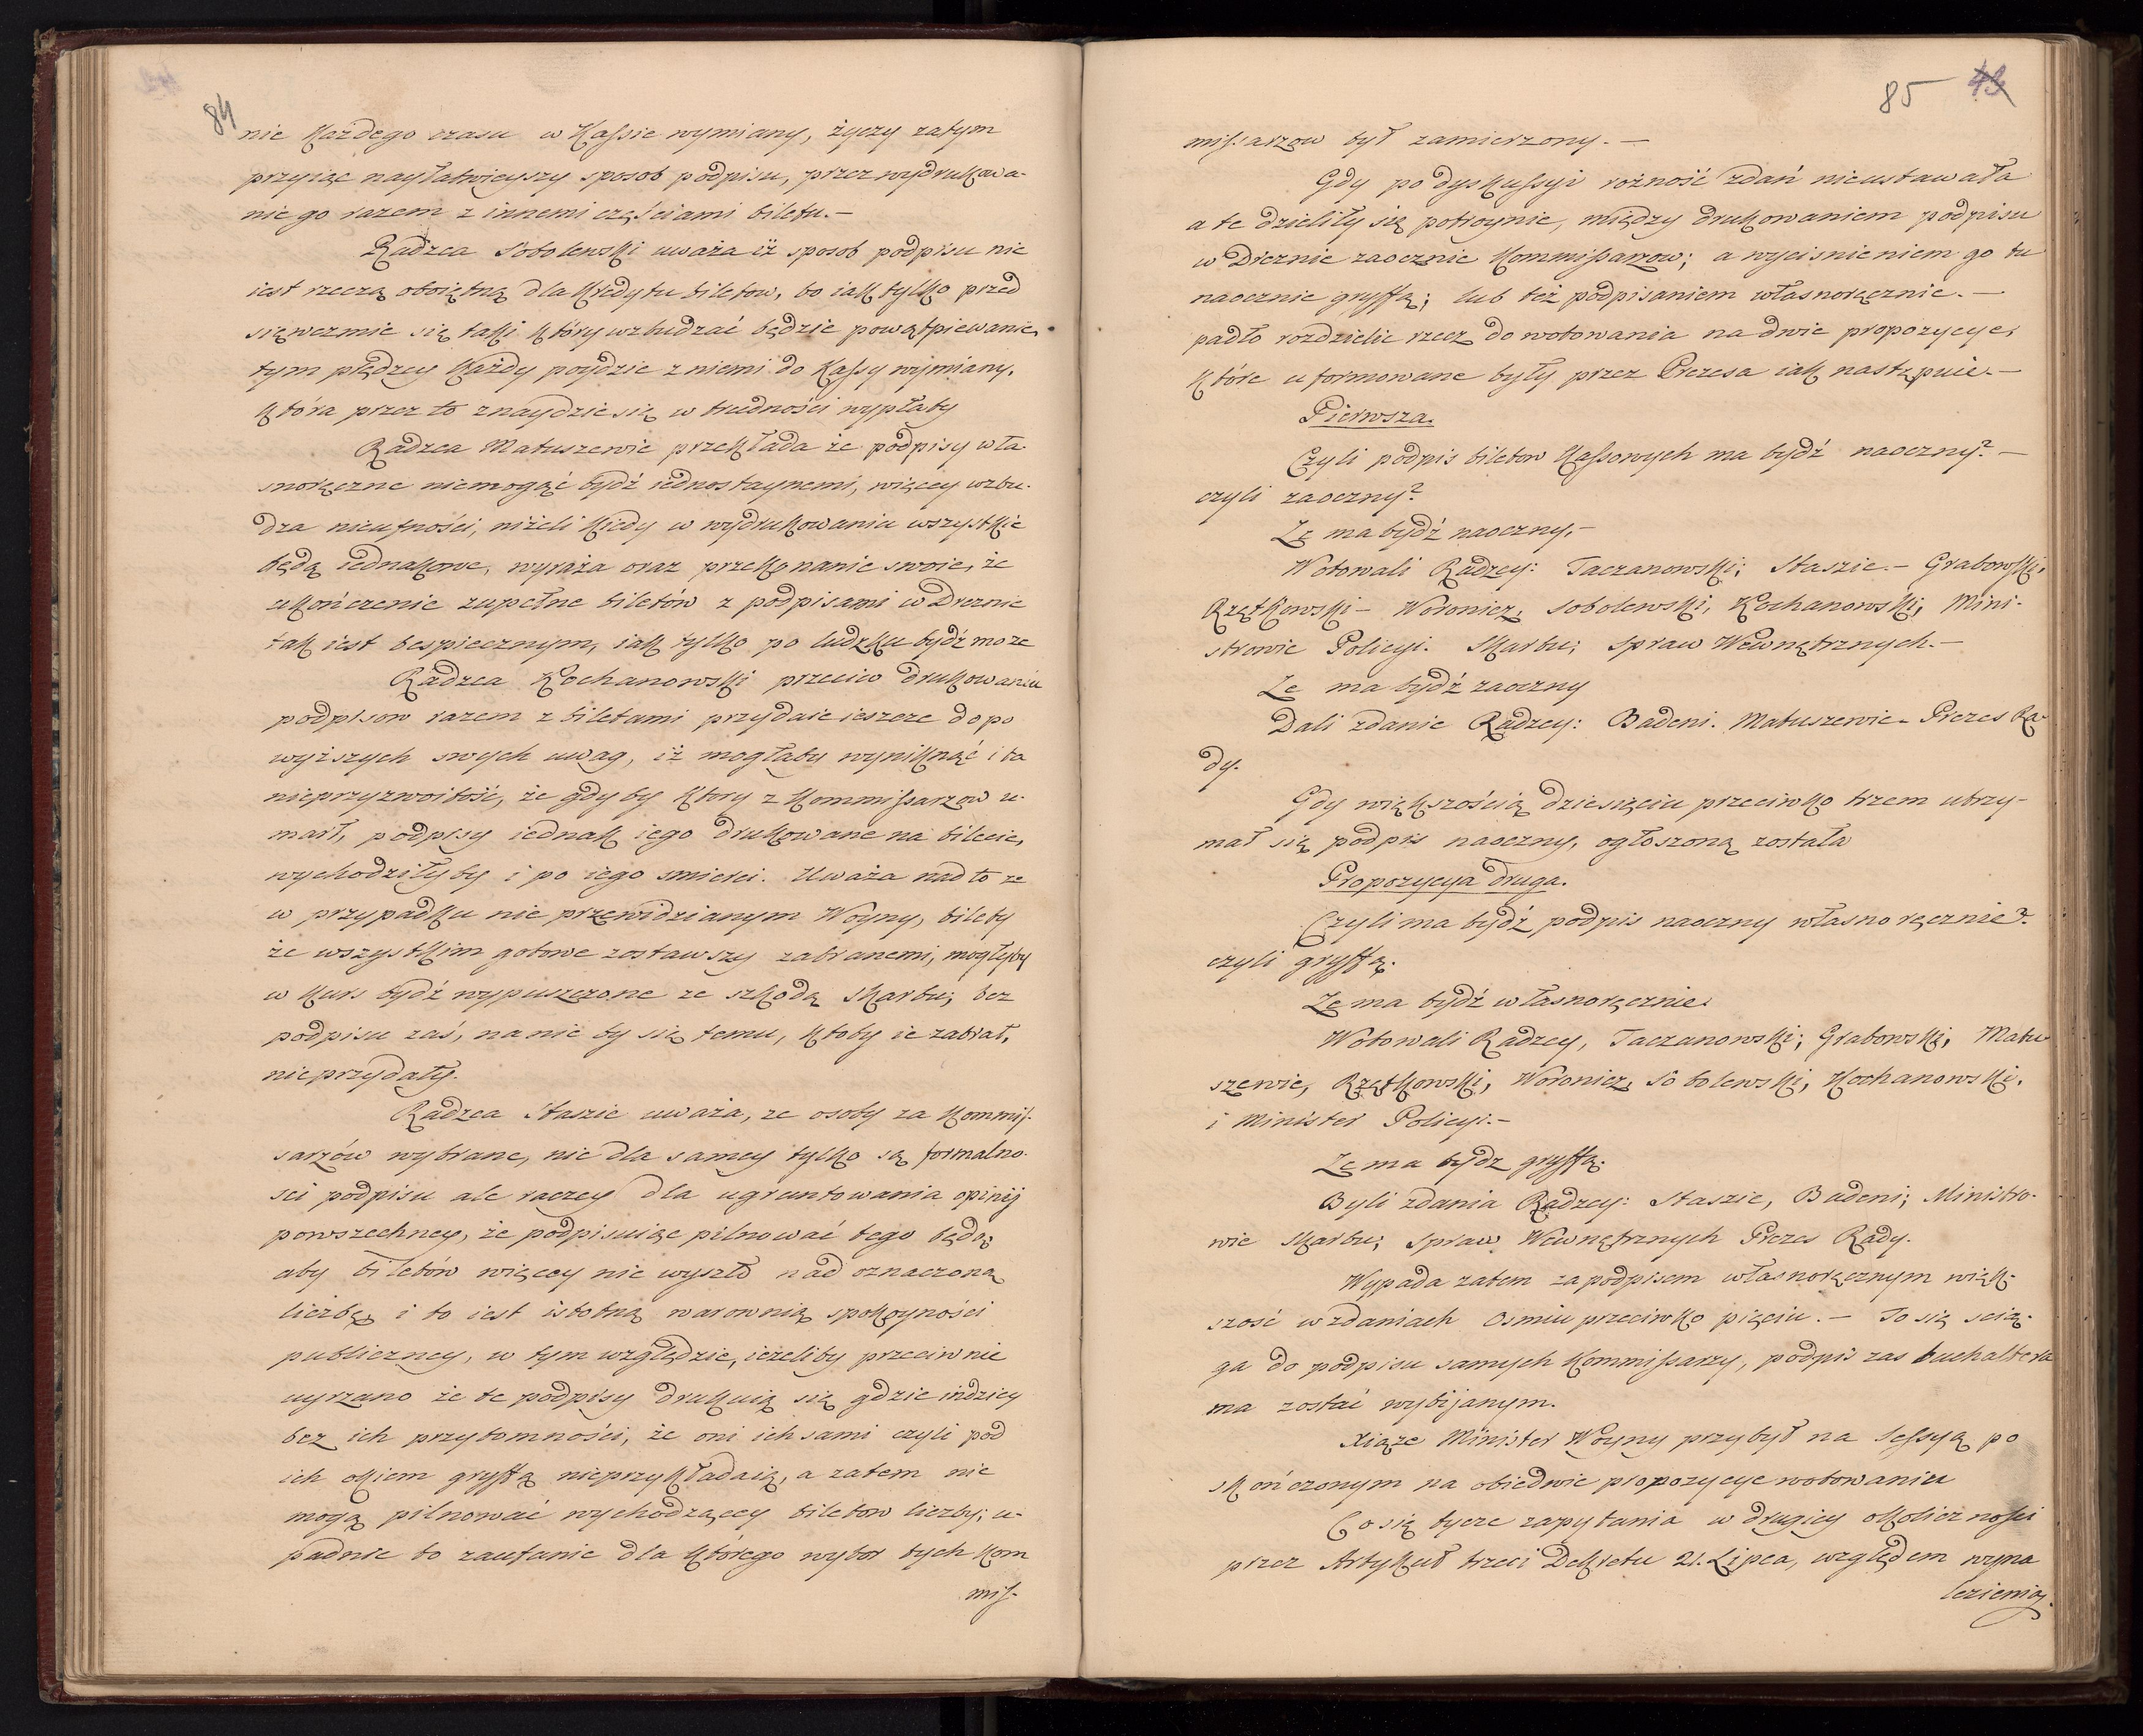 84
nie każdego czasu w Kassie wymiany, życzy zatym
przyiąć nayłatwieyszy sposob podpisu, przez wydrukowa-
nie go razem z innemi częściami biletu.-
Radzca Sobolewski uważa iż sposob podpisu nie
iest rzeczą oboiętną dla kredytu biletow, bo iak tylko przed
sięwezmie się taki który wzbudzać będzie powątpiewanie,
tym prędzey każdy poydzie z niemi do Kassy wymiany,
która przez to znaydzie się w trudności wypłaty
Radzca Matuszewic przekłada że podpisy wła-
snoręczne niemogąć bydź iednostaynemi, więcey wzbu-
dza nieufności, niżeli kiedy w wydrukowaniu wszystkie
będą iednakowe, wyraża oraz przekonanie swoie, że
ukończenie zupełne biletów z podpisami w Dreznie
tak iest bespiecznym, iak tylko po ludzku bydź moze
Radzca Kochanowski przeciw drukowaniu
podpisow razem z biletami przydaie ieszcze do po
wyższych swych uwag, iż mogłaby wyniknąć i ta
nieprzyzwoitość, że gdyby ktory z Kommissarzow u-
marł, podpisy iednak iego drukowane na bilecie,
wychodziłyby i po iego smierci. Uważa nadto ze
w przypadku nie przewidzianym Woyny, bilety
że wszystkim gotowe zostawszy zabranemi, mogłyby
w kurs bydź wypuszczone ze szkodą Skarbu; bez
podpisu zaś, na nic by się temu, ktoby ie zabrał,
nieprzydały.
Radzca Staszic uważa, ze osoby za Kommis-
sarzów wybrane, nie dla samey tylko są formalno-
sci podpisu ale raczey dla ugruntowania opinij
powszechney, że podpisuiąc pilnować tego będą,
aby biletów więcey nie wyszło nad oznaczoną
liczbę, i to iest istotną warownią spokoyności
publiczney, w tym względzie, ieżeliby przeciwnie
uyrzano że te podpisy drukuią się gdzie indziey
bez ich przytomności, że oni ich sami czyli pod
ich okiem gryffą nieprzykładaią, a zatem nie
mogą pilnować wychodzącey biletow liczby; u-
padnie to zaufanie dla którego wybor tych Kom
mis-
85 43
missarzow był zamierzony.-
Gdy po dyskussyi rożność zdań nieustawała
a te dzieliły się potroynie, między drukowaniem podpisu
w Dreznie zaocznie Kommissarzow; a wycisnieniem go tu
naocznie gryffą; lub też podpisaniem własnoręcznie.-
padło rozdzielic rzecz do wotowania na dwie propozycye,
które uformowane były przez Prezesa iak nastąpuie.-
Pierwsza.
Czyli podpis biletow kassowych ma bydź naoczny?-
czyli zaoczny?
Ze ma bydź naoczny,-
Wotowali Radzcy: Taczanowski; Staszic.- Grabowski,
Rzętkowski- Woronicz, Sobolewski, Kochanowski, Mini-
strowie Policyi. Skarbu; Spraw Wewnętrznych.-
Ze ma bydź zaoczny
Dali zdanie Radzcy: Badeni. Matuszewic- Prezes Ra-
dy.
Gdy większością dziesięciu przeciwko trzem utrzy-
mał się podpis naoczny, ogłoszoną została
Propozycya druga.
Czyli ma bydź podpis naoczny własnoręcznie?
czyli gryffą.
Ze ma bydź własnoręcznie
Wotowali Radzcy, Taczanowski; Grabowski, Matu
szewic, Rzętkowski, Woronicz, Sobolewski, Kochanowski,
i Minister Policyi.-
Ze ma bydz gryffą.
Byli zdania Radzcy: Staszic, Badeni; Ministro-
wie Skarbu; Spraw Wewnętrznych Prezes Rady.
Wypada zatem za podpisem własnoręcznym więk-
szość w zdaniach Osmiu przeciwko pięciu.- To się scią-
ga do podpisu samych Kommissarzy, podpis zas buchaltera
ma zostać wybijanym.
Xiąże Minister Woyny przybył na Sessyą po
skończonym na obiedwie propozycye wotowaniu
Co się tycze zapytania w drugiey okoliczności
przez Artykuł trzeci Dekretu 21. Lipca, względem wyna
lezienia,